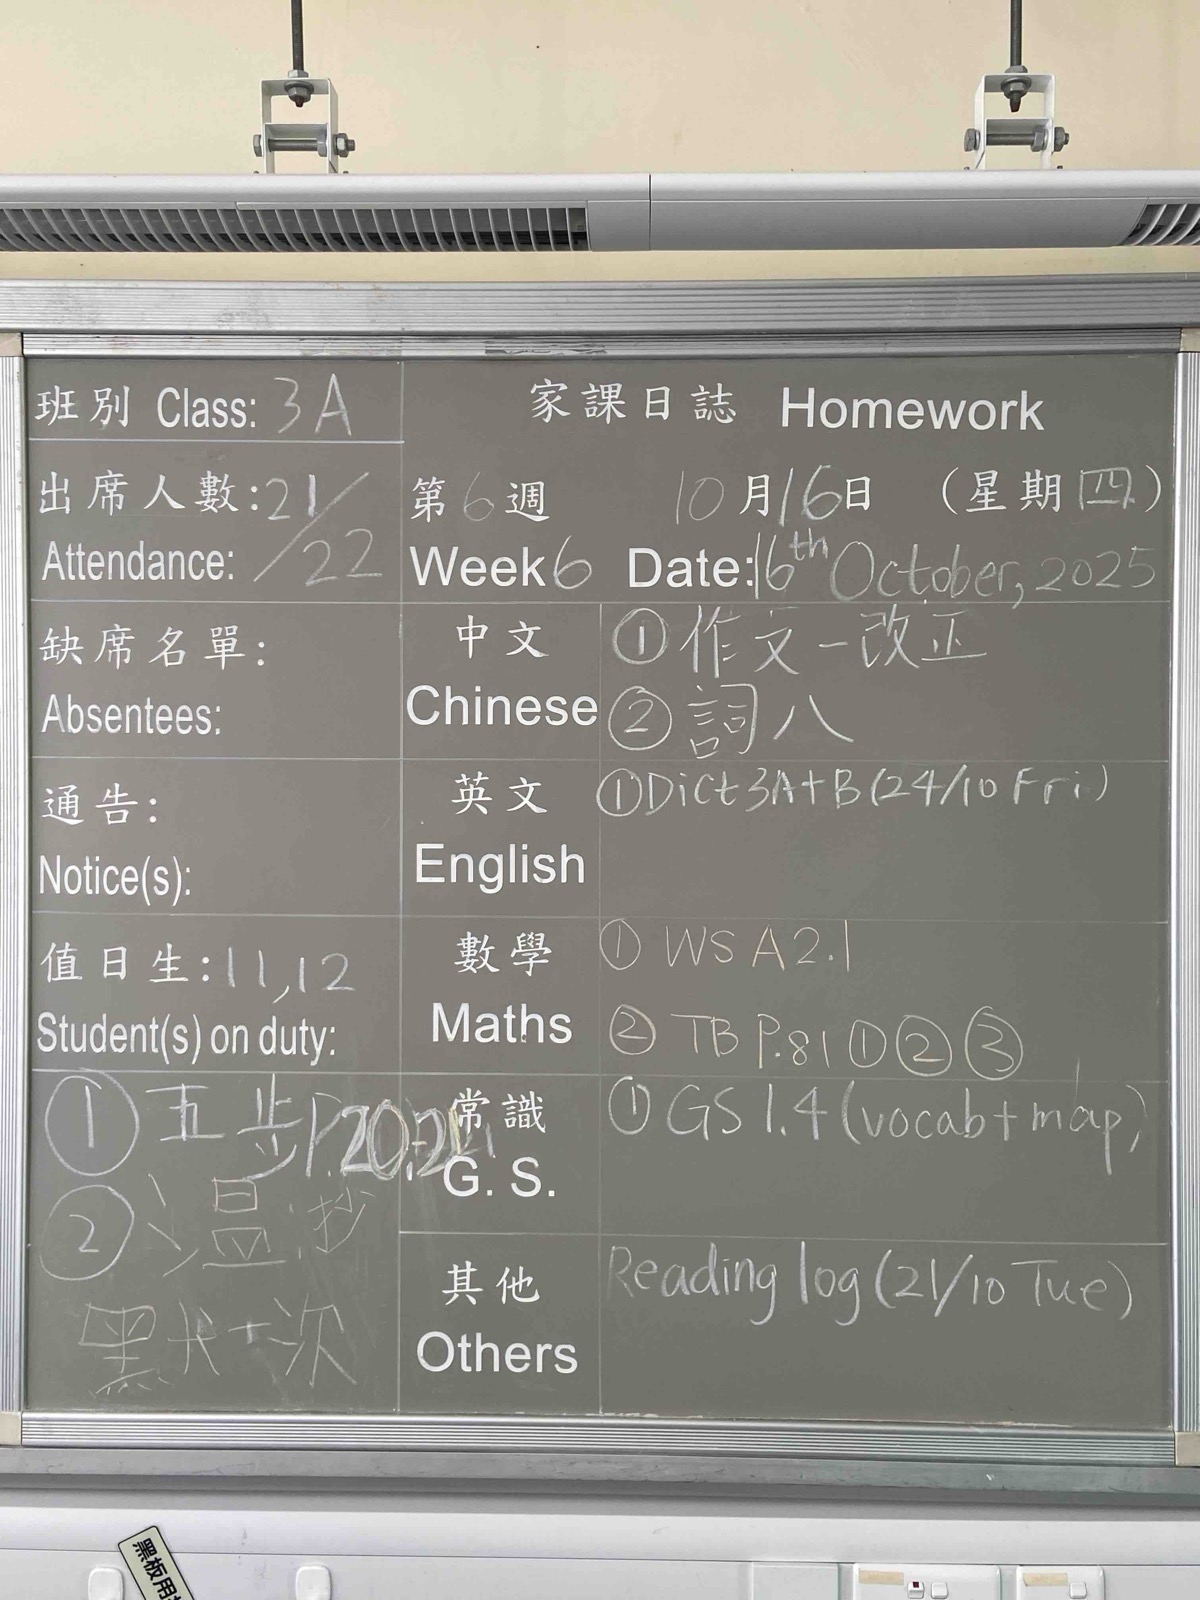 班別 Class: 3A
家課日誌 Homework
出席人數: 21/22
Attendance:
第6週 10月16日 (星期四)
Week 6 Date: 16th October, 2025
缺席名單:
Absentees:
中文
Chinese
① 作文一改正
② 詞八
通告:
Notice(s):
英文
English
① Dict 3A+B (24/10 Fri)
值日生: 11,12
Student(s) on duty:
數學
Maths
① WS A2.1
② TB P.81 ① ② ③
① 五步 P.20,21
② 溫抄
黑犬一次
常識
G. S.
① GS 1.4 (vocab + map)
其他
Others
Reading log (21/10 Tue)
黑板用